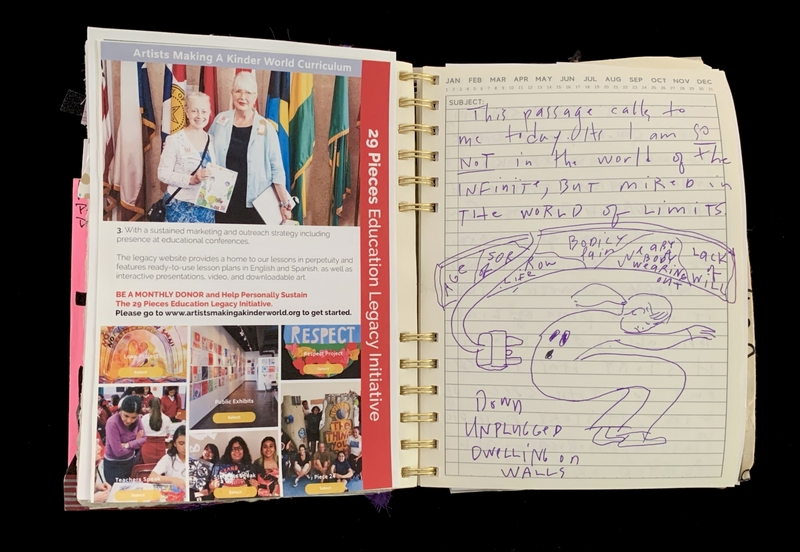 Artists Making A Kinder World Curriculum
29 Pieces Education Legacy Initiative
3. With a sustained marketing and outreach strategy including
presence at educational conferences.
The legacy website provides a home to our lessons in perpetuity and
features ready-to-use lesson plans in English and Spanish, as well as
interactive presentations, video, and downloadable art
BE A MONTHLY DONOR and Help Personally Sustain
The 29 Pieces Education Legacy Initiative.
Please go to www.artistsmakingakinderworld.org to get started.
RESPECT
Respect Project
Select
Select
Public Exhibits
Select
Teachers Speak
Select
Speak
Select
Piece 24
Select
JAN FEB MAR APR MAY JUN JUL AUG SEP OCT NOV DEC
SUBJECT:
This passage calls to
me today. I am SO
NOT in the world of the
INFINITE, BUT MIRED in
THE WORLD OF LIMITS
AGE
LIFE
BODILY
Pain
BODY
WEARING
OUT
LACK
of
WILL
DOWN
UNPLUGGED
DWELLING on
WALLS